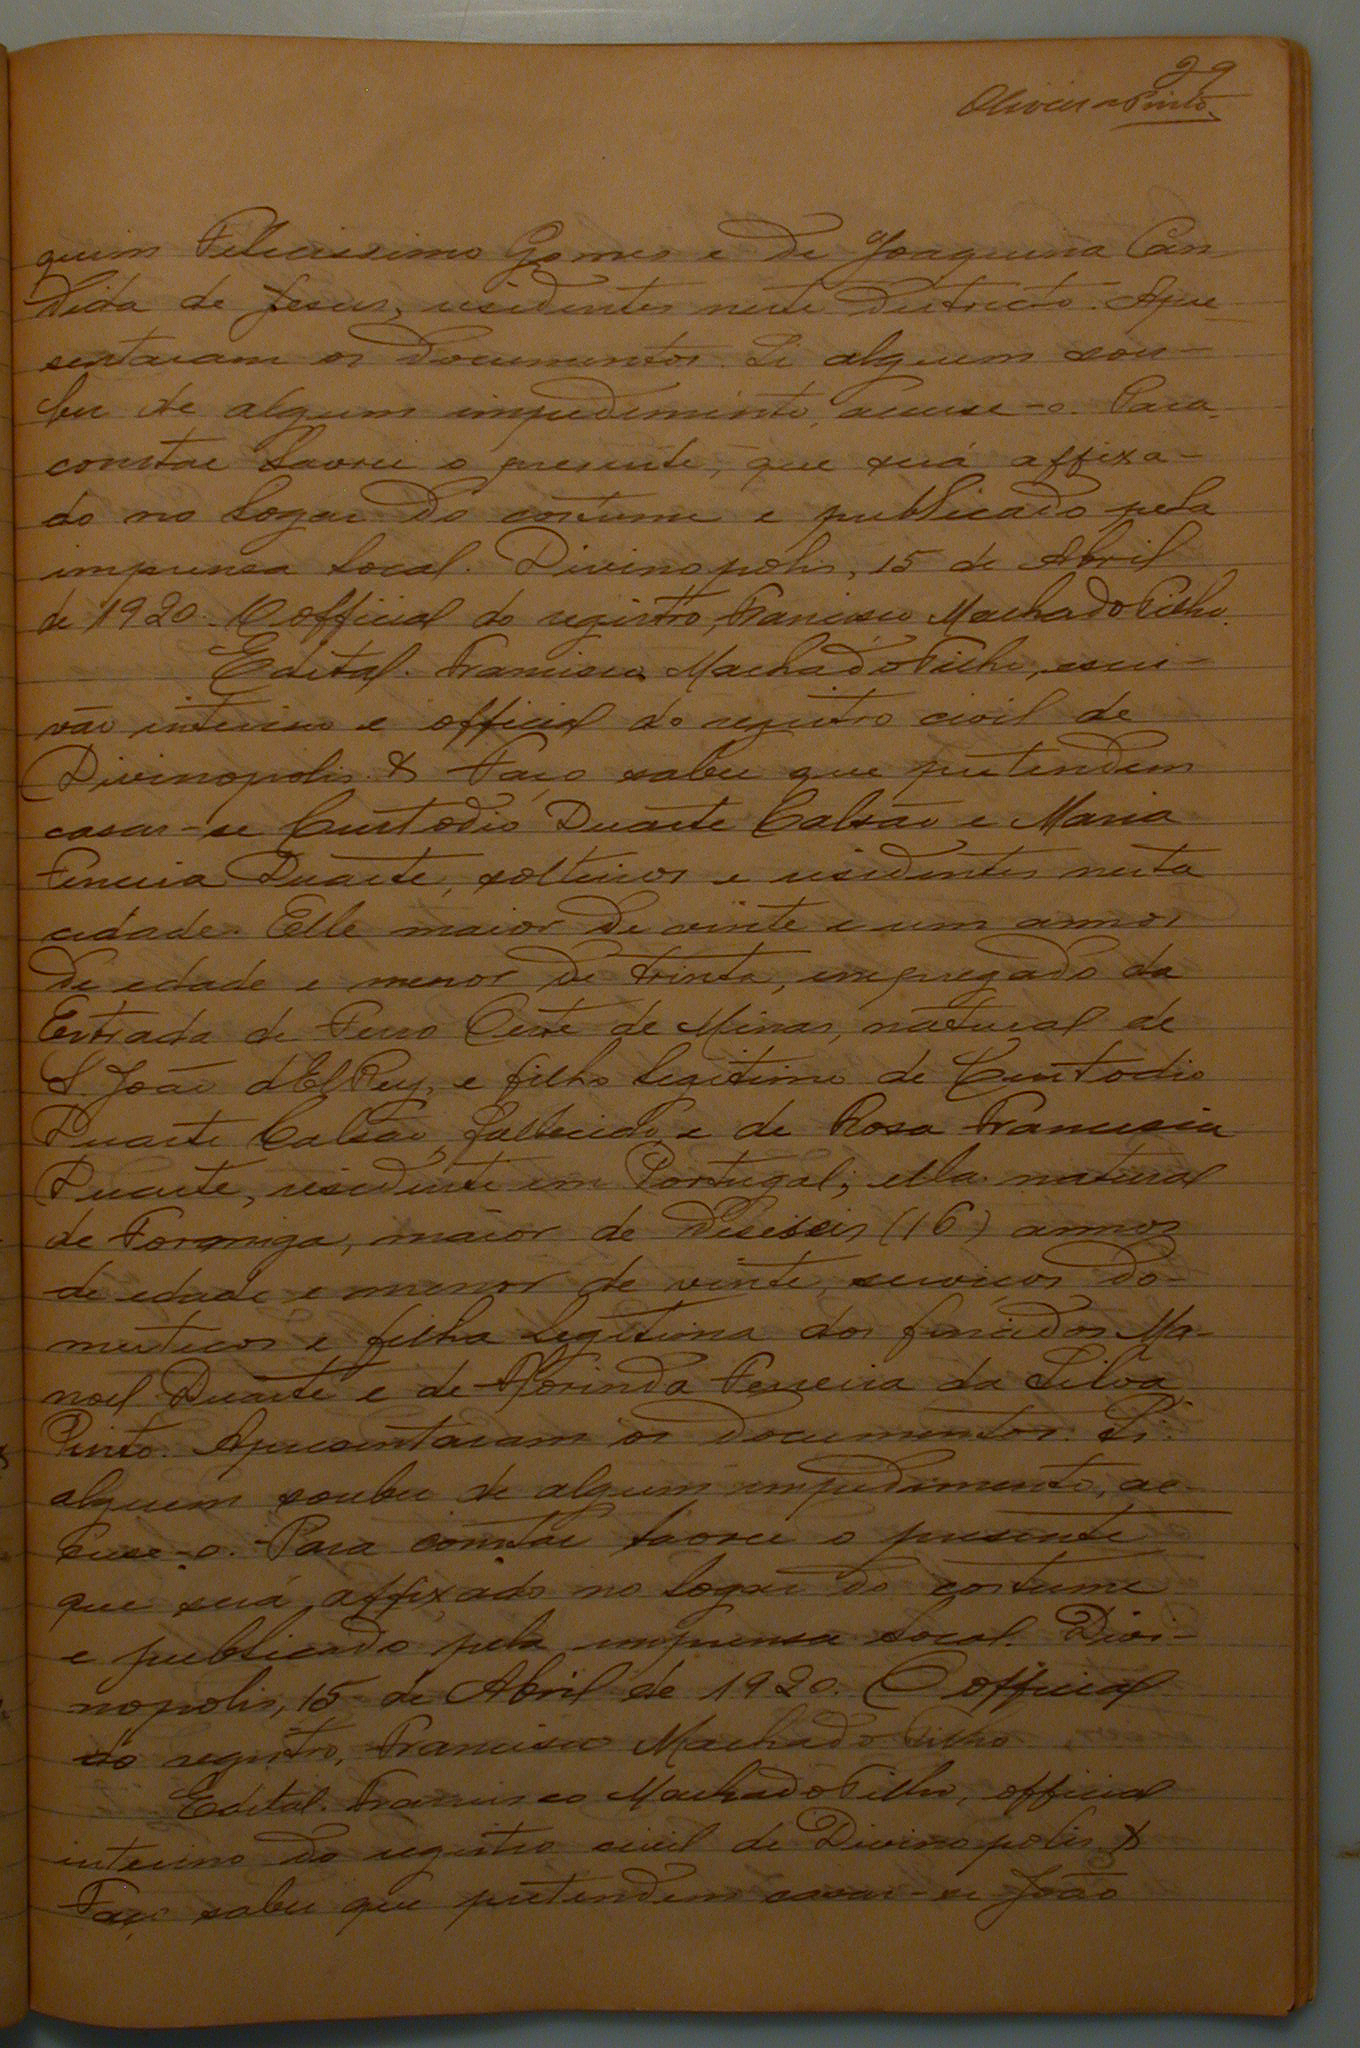 29
Oliveira Pinto.
quim Felicissimo Gomes e de Joaquina Can-
dida de Jesus, residentes neste districto. Apre-
sentaram os documentos. Si alguem sou-
ber de algum impedimento, accuse-o. Para
constar lavrei o presente, que será affixa-
do no logar do costume e publicado pela
imprensa local. Divinopolis, 15 de Abril
de 1920. O official do registro, Francisco Machado Filho.
Edital. Francisco Machado Filho, escri-
vão interino e official do registro civil de
Divinopolis & Faço saber que pretendem
casar-se Custodio Duarte Calsão e Maria
Ferreira Duarte, solteiros e residentes nesta
cidade. Elle maior de vinte e um annos
de edade e menor de trinta, empregado da
Estrada de Ferro Oeste de Minas, natural de
S. João d'El Rey, e filho legitimo de Custodio
Duarte Calsão, fallecido, e de Rosa Francisca
Duarte, residente em Portugal; ella natural
de Formiga, maior de deseseis (16) annos
de edade e menor de vinte, serviços do-
mesticos e filha legitima dos finados Ma-
noel Duarte e de Florinda Ferreira da Silva
Pinto. Apresentaram os documentos. Si
alguem souber de algum impedimento, ac-
cuse-o. Para constar lavrei o presente
que será affixado no logar do costume
e publicado pela imprensa local. Divi-
nopolis, 15 de Abril de 1920. O official
do registro, Francisco Machado Filho.
Edital. Francisco Machado Filho, official
interino do registro civil de Divinopolis &
Faço saber que pretendem casar-se João